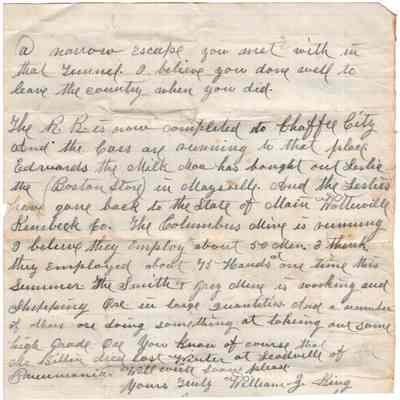 a narrow escape you met with in
that Tunnel. I believe you done well to
leave the country when you did.
The R R is now completed to Chaffee City
and the Cars are running to that place
Edwards the Milk Man has bought out Leslie
the (Boston Store) in Maysville. And the Leslies
have gone back to the State of Main Waterville
Kennbeck Co. The Columbus Mine is running
I believe they Employ about 50 Men. I think
they Employed about 75 Hands at one time this
Summer The Smith & Gray Mine is working and
Shipping Ore in large quantities And a number
of Mines are doing something at taking out some
high Grade Ore You Know of course that
died last Winter at Leadville of
Pneumonia Will write soon please
Yours Truly William J. King